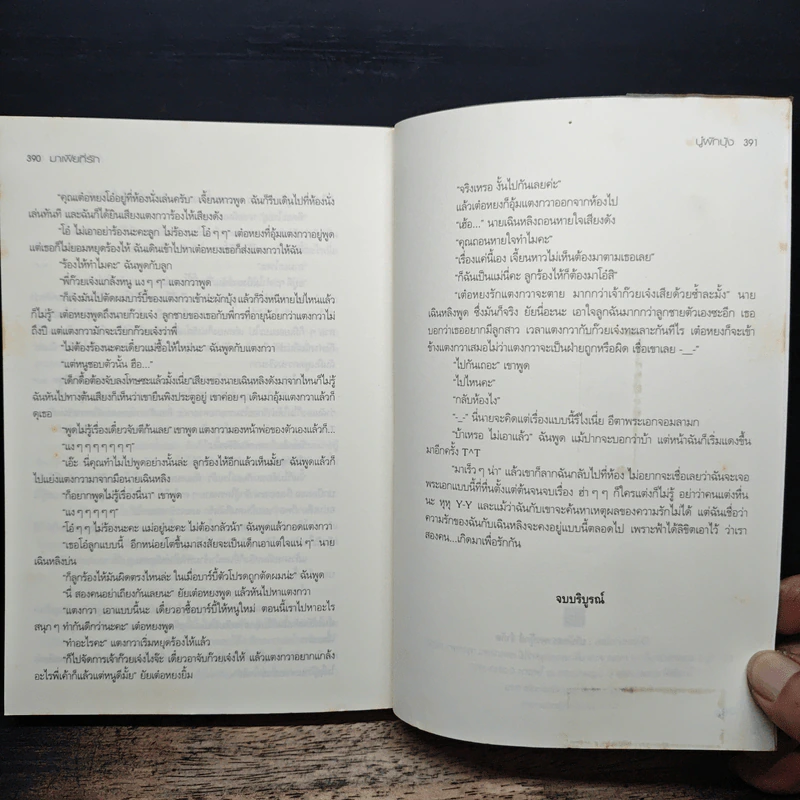 390 มาเฟียที่รัก
"คุณเต๋อหยงโอ๋อยู่ที่ห้องนั่งเล่นครับ" เจี้ยนหาวพูด ฉันก็รีบเดินไปที่ห้องนั่ง
เล่นทันที และฉันก็ได้ยินเสียงแตงกวาร้องไห้เสียงดัง
"โอ๋ ไม่เอาอย่าร้องนะคะลูก ไม่ร้องนะ โอ๋ ๆ ๆ" เต๋อหยงที่อุ้มแตงกวาอยู่พูด
แต่เธอก็ไม่ยอมหยุดร้องไห้ ฉันเดินเข้าไปหาเต๋อหยงเธอก็ส่งแตงกวาให้ฉัน
"ร้องไห้ทำไมคะ" ฉันพูดกับลูก
"พี่ก๊วยเจ๋งแกล้งหนู แง ๆ ๆ" แตงกวาพูด
"ก็เจ๋งมันไปตัดผมบาร์บี้ของแตงกวาเข้าน่ะผักบุ้ง แล้วก็วิ่งหนีหายไปไหนแล้ว
ก็ไม่รู้" เต๋อหยงพูดถึงนายก๊วยเจ๋ง ลูกชายของเธอกับพี่กรที่อายุน้อยกว่าแตงกวาไม่
ถึงปี แต่แตงกวามักจะเรียกก๊วยเจ๋งว่าพี่
"ไม่ต้องร้องนะคะเดี๋ยวแม่ซื้อให้ใหม่นะ" ฉันพูดกับแตงกวา
"แต่หนูชอบตัวนั้น ฮือ..."
"เด็กดื้อต้องจับลงโทษซะแล้วมั้งเนี่ย"เสียงของนายเฉินหลิงดังมาจากไหนก็ไม่รู้
ฉันหันไปทางต้นเสียงก็เห็นว่าเขายืนพิงประตูอยู่ เขาค่อย ๆ เดินมาอุ้มแตงกวาแล้วก็
ดุเธอ
"พูดไม่รู้เรื่องเดี๋ยวจับตีกันเลย" เขาพูด แตงกวามองหน้าพ่อของตัวเองแล้วก็...
"แง ๆ ๆ ๆ ๆ ๆ ๆ"
"เอ๊ะ นี่คุณทำไมไปพูดอย่างนั้นล่ะ ลูกร้องไห้อีกแล้วเห็นมั้ย" ฉันพูดแล้วก็
ไปแย่งแตงกวามาจากมือนายเฉินหลิง
"ก็อยากพูดไม่รู้เรื่องนี่นา" เขาพูด
"แง ๆ ๆ ๆ ๆ"
"โอ๋ ๆ ๆ ไม่ร้องนะคะ แม่อยู่นะคะ ไม่ต้องกลัวน้า" ฉันพูดแล้วกอดแตงกวา
"เธอโอ๋ลูกแบบนี้ อีกหน่อยโตขึ้นมาสงสัยจะเป็นเด็กเอาแต่ใจแน่ ๆ" นาย
เฉินหลิงบ่น
"ก็ลูกร้องไห้มันผิดตรงไหนล่ะ ในเมื่อบาร์บี้ตัวโปรดถูกตัดผมน่ะ" ฉันพูด
"นี่ สองคนอย่าเถียงกันเลยนะ" ยัยเต๋อหยงพูด แล้วหันไปหาแตงกวา
"แตงกวา เอาแบบนี้นะ เดี๋ยวอาซื้อบาร์บี้ให้หนูใหม่ ตอนนี้เราไปหาอะไร
สนุก ๆ ทำกันดีกว่านะคะ" เต๋อหยงพูด
"ทำอะไรคะ" แตงกวาเริ่มหยุดร้องไห้แล้ว
"ก็ไปจัดการเจ้าก๊วยเจ๋งไงจ๊ะ เดี๋ยวอาจับก๊วยเจ๋งให้ แล้วแตงกวาอยากแกล้ง
อะไรพี่เค้าก็แล้วแต่หนูดีมั้ย" ยัยเต๋อหยงยิ้ม
ปูผักบุ้ง 391
"จริงเหรอ งั้นไปกันเลยค่ะ"
แล้วเต๋อหยงก็อุ้มแตงกวาออกจากห้องไป
"เฮ้อ..." นายเฉินหลิงถอนหายใจเสียงดัง
"คุณถอนหายใจทำไมคะ"
"เรื่องแค่นี้เอง เจี้ยนหาวไม่เห็นต้องมาตามเธอเลย"
"ก็ฉันเป็นแม่นี่คะ ลูกร้องไห้ก็ต้องมาโอ๋สิ"
"เต๋อหยงรักแตงกวาจะตาย มากกว่าเจ้าก๊วยเจ๋งเสียด้วยซ้ำละมั้ง" นาย
เฉินหลิงพูด ซึ่งมันก็จริง ยัยนี่อะนะ เอาใจลูกฉันมากกว่าลูกชายตัวเองซะอีก เธอ
บอกว่าเธออยากมีลูกสาว เวลาแตงกวากับก๊วยเจ๋งทะเลาะกันทีไร เต๋อหยงก็จะเข้า
ข้างแตงกวาเสมอไม่ว่าแตงกวาจะเป็นฝ่ายถูกหรือผิด เชื่อเขาเลย -__-"
"ไปกันเถอะ" เขาพูด
"ไปไหนคะ"
"กลับห้องไง"
"-_-" นี่นายจะคิดแต่เรื่องแบบนี้รึไงเนี่ย อีตาพระเอกจอมลามก
"บ้าเหรอ ไม่เอาแล้ว" ฉันพูด แม้ปากจะบอกว่าบ้า แต่หน้าฉันก็เริ่มแดงขึ้น
มาอีกครั้ง T^T
"มาเร็ว ๆ น่า" แล้วเขาก็ลากฉันกลับไปที่ห้อง ไม่อยากจะเชื่อเลยว่าฉันจะเจอ
พระเอกแบบนี้ที่หื่นตั้งแต่ต้นจนจบเรื่อง ฮ่า ๆ ๆ ก็ใครแต่งก็ไม่รู้ อย่าว่าคนแต่งหื่น
นะ หุหุ Y-Y และแม้ว่าฉันกับเขาจะค้นหาเหตุผลของความรักไม่ได้ แต่ฉันเชื่อว่า
ความรักของฉันกับเฉินหลิงจะคงอยู่แบบนี้ตลอดไป เพราะฟ้าได้ลิขิตเอาไว้ ว่าเรา
สองคน...เกิดมาเพื่อรักกัน
จบบริบูรณ์